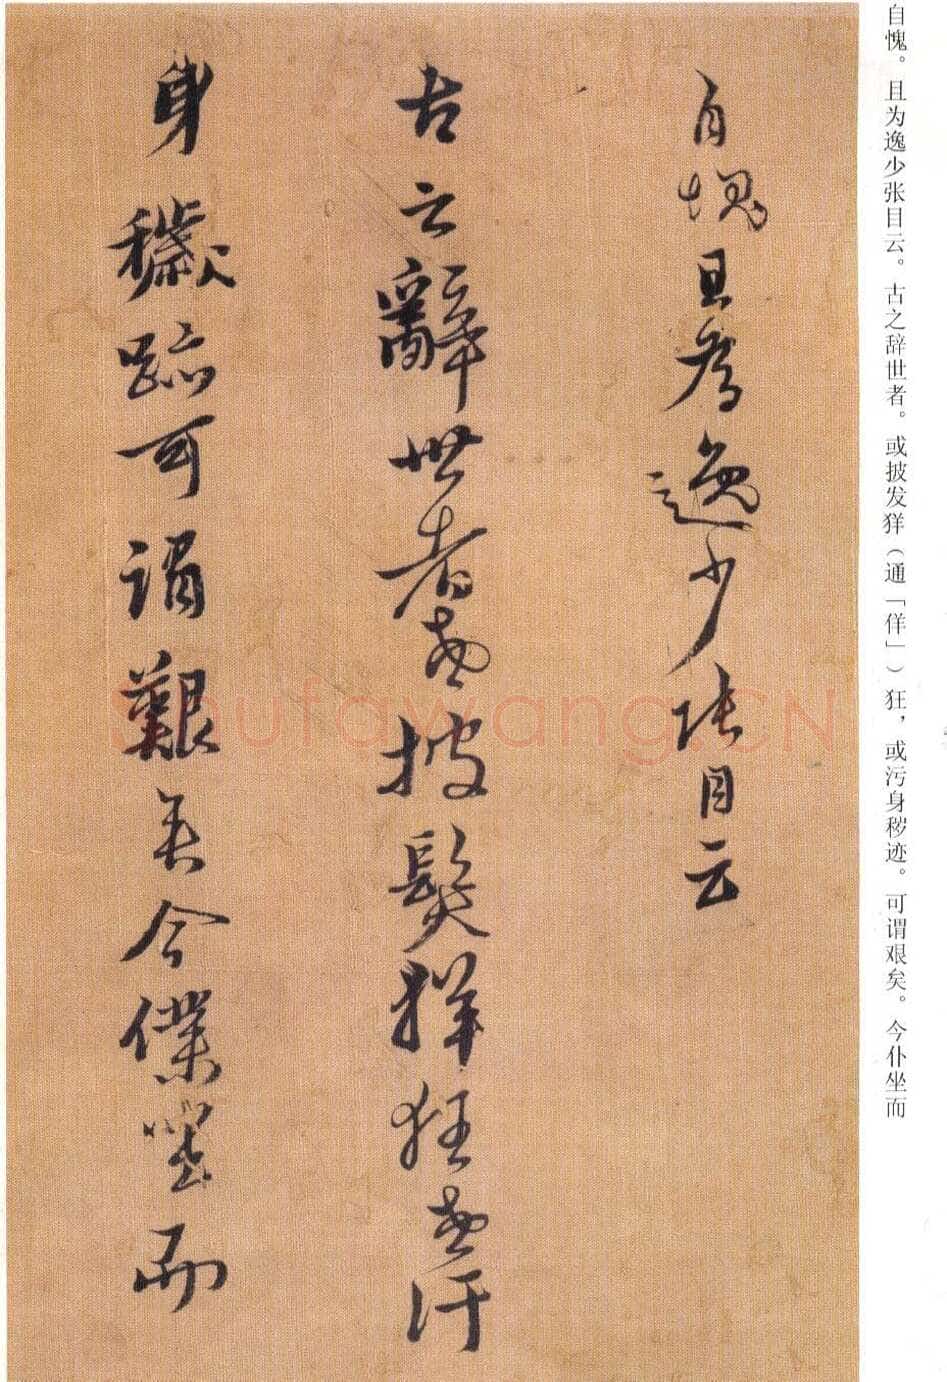 自愧。且为逸少张目云。古之辞世者。或披发猖（通「佯」）狂，或污身秽迹。可谓艰矣。今仆坐而
自愧且為逸少張目云
古之辭世者或披髮徉狂或汙
身穢跡可謂艱矣今僕坐而
shufawang.CN